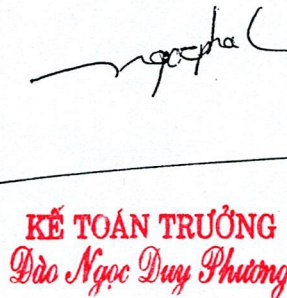 KẾ TOÁN TRƯỞNG
Đào Ngọc Duy Phương